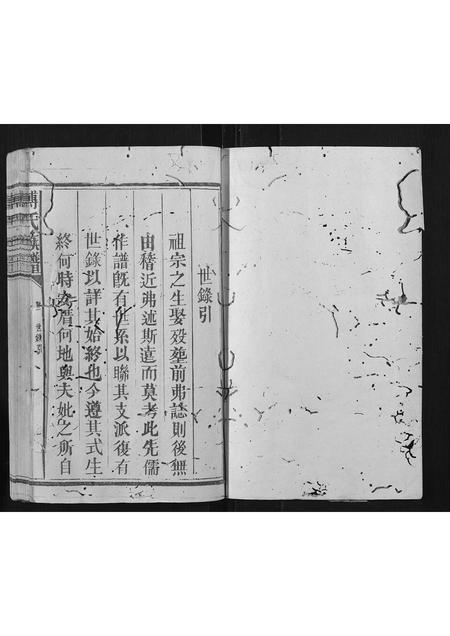 世錄引
祖宗之生娶殁塟前弗誌則後無
由稽近弗述斯遠而莫考此先儒
作譜旣有世系以聯其支派復有
世錄以詳其始終也今遵其式生
終何時女厝何地與夫妣之所自
傅氏族譜
世錄引